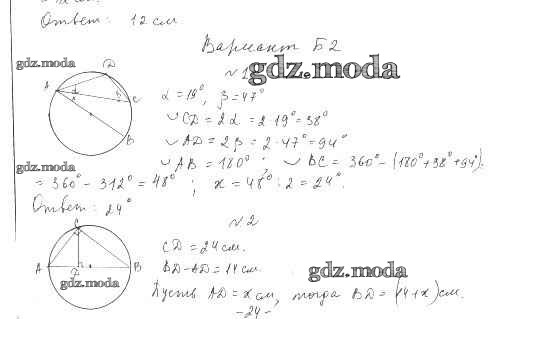 Ответ: 12 см
Вариант Б2
gdz.moda
№1
gdz.moda
D
A
α
β
x
C
B
α = 19°, β = 47°
◡ CD = 2α = 2·19° = 38°
◡ AD = 2β = 2·47° = 94°
gdz.moda
◡ AB = 180°; ◡ BC = 360° - (180° + 38° + 94°)
= 360° - 312° = 48°; x = 48° : 2 = 24°.
Ответ: 24°
№2
C
A
B
CD = 24 см.
BD - AD = 14 см.
gdz.moda
gdz.moda
Пусть AD = x см, тогда BD = (14 + x) см.
-24-